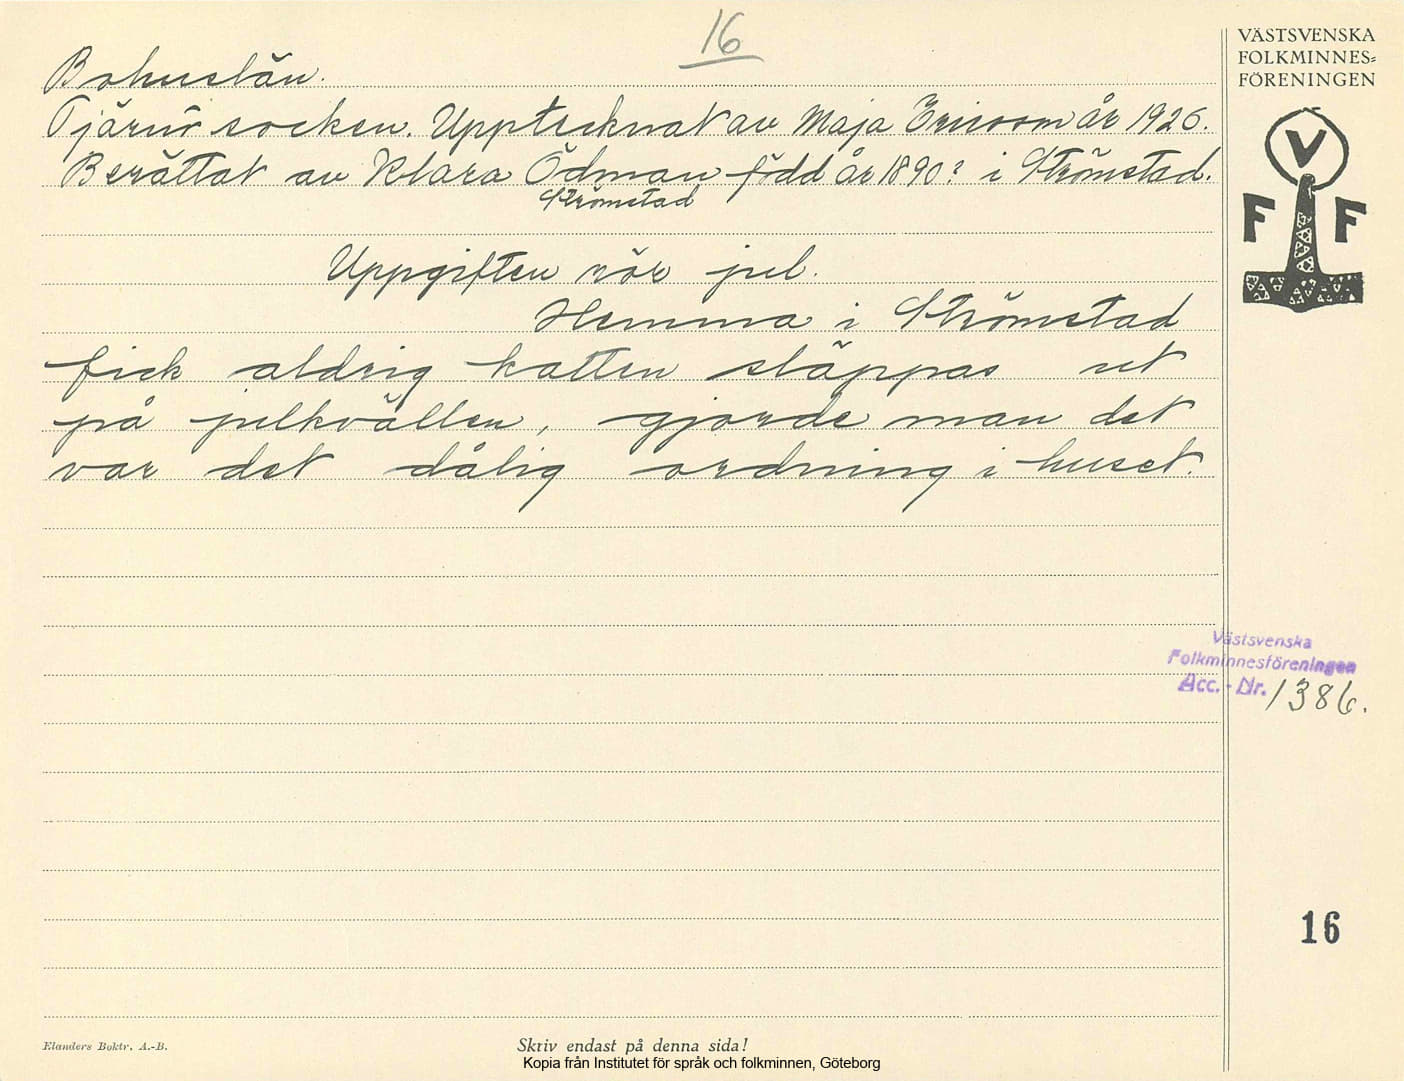 16
VÄSTSVENSKA
FOLKMINNES=
FÖRENINGEN
V
F F
Bohuslän.
Tjärnö socken. Upptecknat av Maja Ericson år 1926.
Berättat av Klara Ödman född år 1890? i Strömstad.
Strömstad
Uppgiften rör jul.
Hemma i Strömstad
fick aldrig katten släppas ut
på julkvällen, gjorde man det
var det dålig ordning i huset.
Västsvenska
Folkminnesföreningen
Acc. - Nr. 1386.
16
Elanders Boktr. A.-B.
Skriv endast på denna sida!
Kopia från Institutet för språk och folkminnen, Göteborg